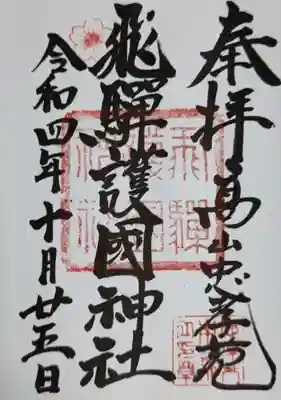 奉拝 高山忠孝苑
飛騨護國神社
令和四年十月廿五日